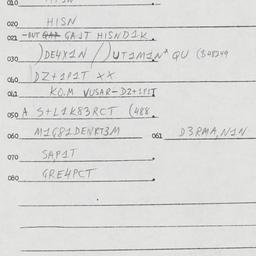 010
020 HISN
021 -BUT GAJT HISND1K.
030 )DE4X1N /)UT1M1N^ QU (348249
040 DZ+1P1T XX
041 K0.M VUSAR-DZ+1P1T
050 A S+L1K83RCT (488.
060 M1G81DENRT3M 061 D3RMA,N1N
070 SAP1T
080 GRE4PCT